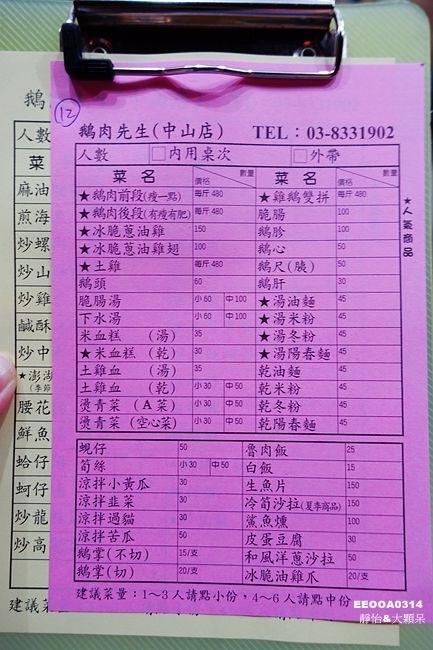 12
鵝肉先生(中山店) TEL：03-8331902
人數 □內用桌次 □外帶
菜名 價格 數量 菜名 價格 數量
★鵝肉前段(瘦一點) 每斤 480 ★雞鵝雙拼 每斤 480
★鵝肉後段(有瘦有肥) 每斤 480 脆腸 100
★冰脆蔥油雞 150 鵝胗 100
★冰脆蔥油雞翅 100 鵝心 50
★土雞 每斤 480 鵝尺(胰) 50
鵝頭 60 鵝肝 30
脆腸湯 小 60 中 100 ★湯油麵 45
下水湯 小 60 中 100 ★湯米粉 45
米血糕 (湯) 35 ★湯冬粉 45
★米血糕 (乾) 30 ★湯陽春麵 45
土雞血 (湯) 35 乾油麵 45
土雞血 (乾) 小 30 中 50 乾米粉 45
燙青菜 (A菜) 小 30 中 50 乾冬粉 45
燙青菜 (空心菜) 小 30 中 50 乾陽春麵 45
★人氣商品
蜆仔 50 魯肉飯 25
筍絲 小 30 中 50 白飯 15
涼拌小黃瓜 30 生魚片 150
涼拌韭菜 30 冷筍沙拉(夏季商品) 150
涼拌過貓 30 鯊魚燻 100
涼拌苦瓜 50 皮蛋豆腐 30
鵝掌(不切) 15/支 和風洋蔥沙拉 50
鵝掌(切) 20/支 冰脆油雞爪 20/支
建議菜量：1～3人請點小份，4～6人請點中份
鵝
人數
菜
麻油
煎海
炒螺
炒山
炒雞
鹹酥
炒中
★澎湖
(季節
腰花
鮮魚
蛤仔
蚵仔
炒龍
炒高
建議菜
EEOOA0314
靜怡&大顆呆